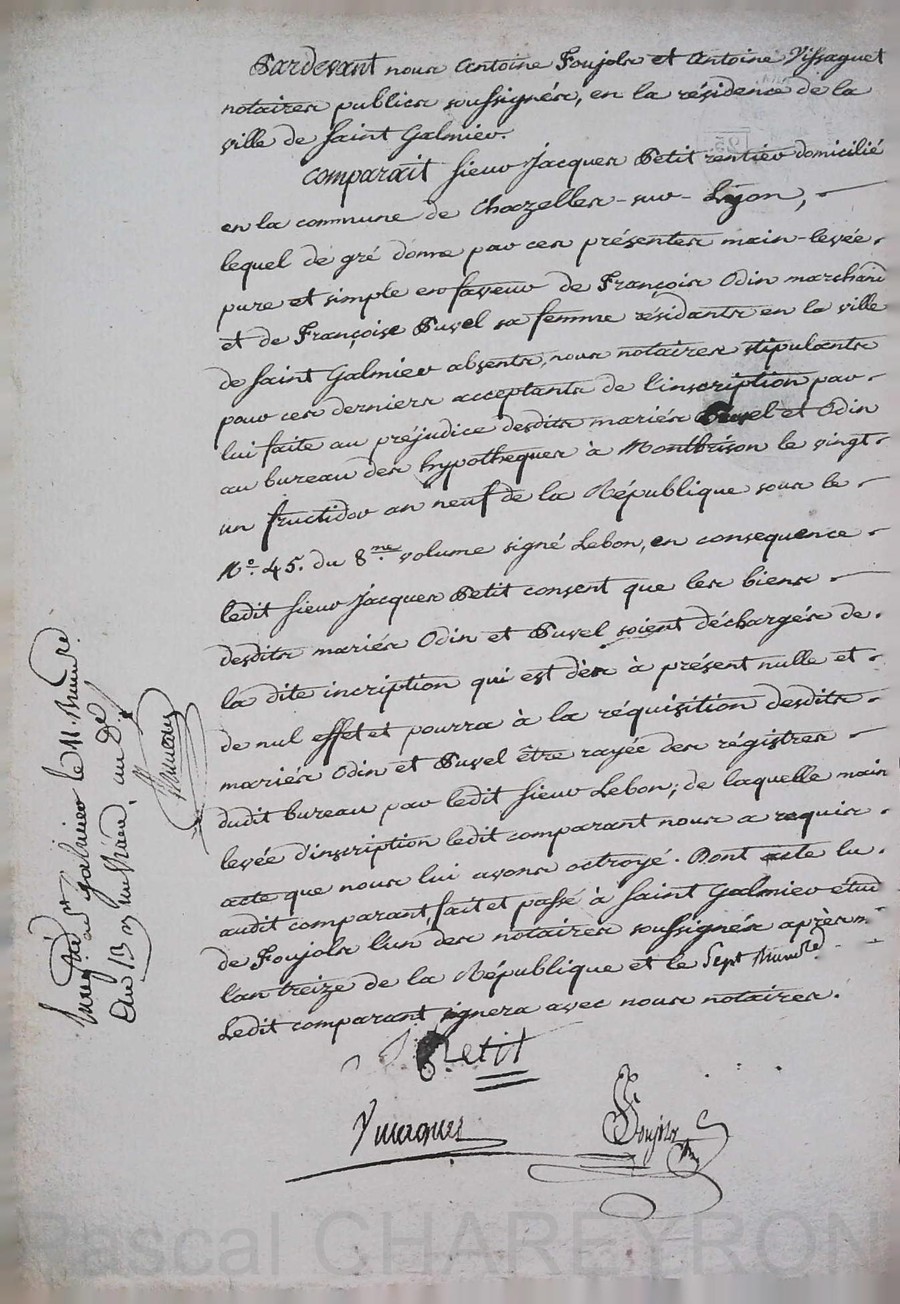 Pardevant nous Antoine Foujols et Antoine Vissaguet
notaires publics soussignés, en la résidence de la
ville de Saint Galmier.
Comparait sieur Jacques Petit rentier domicilié
en la commune de Chazelles-sur-Lyon,
lequel de gré donne par ces présentes main-levée
pure et simple en faveur de François Odin marchand
et de Françoise Puvel sa femme résidants en la ville
de Saint Galmier absents, nous notaires stipulants
pour ces derniers acceptants de l'inscription par
lui faite au préjudice desdits mariés Puvel et Odin
au bureau des hypotheques à Montbrison le vingt-
un fructidor an neuf de la République sous le
N.º 45. du 8.me volume signé Lebon, en consequence
ledit sieur Jacques Petit consent que les biens
desdits mariés Odin et Puvel soient déchargés de
la dite incription qui est dès à présent nulle et
de nul effet et pourra à la réquisition desdits
mariés Odin et Puvel être rayée des régistres
dudit bureau par ledit sieur Lebon; de laquelle main
levée d'inscription ledit comparant nous a requis
acte que nous lui avons octroyé. Dont acte lu
audit comparant, fait et passé à Saint Galmier étude
de Foujols l'un des notaires soussignés après m.
l'an treize de la République et le Sept
Ledit comparant signera avec nous notaires.
Petit
Foujols
galmier le 11.
an
Pascal CHAREYRON